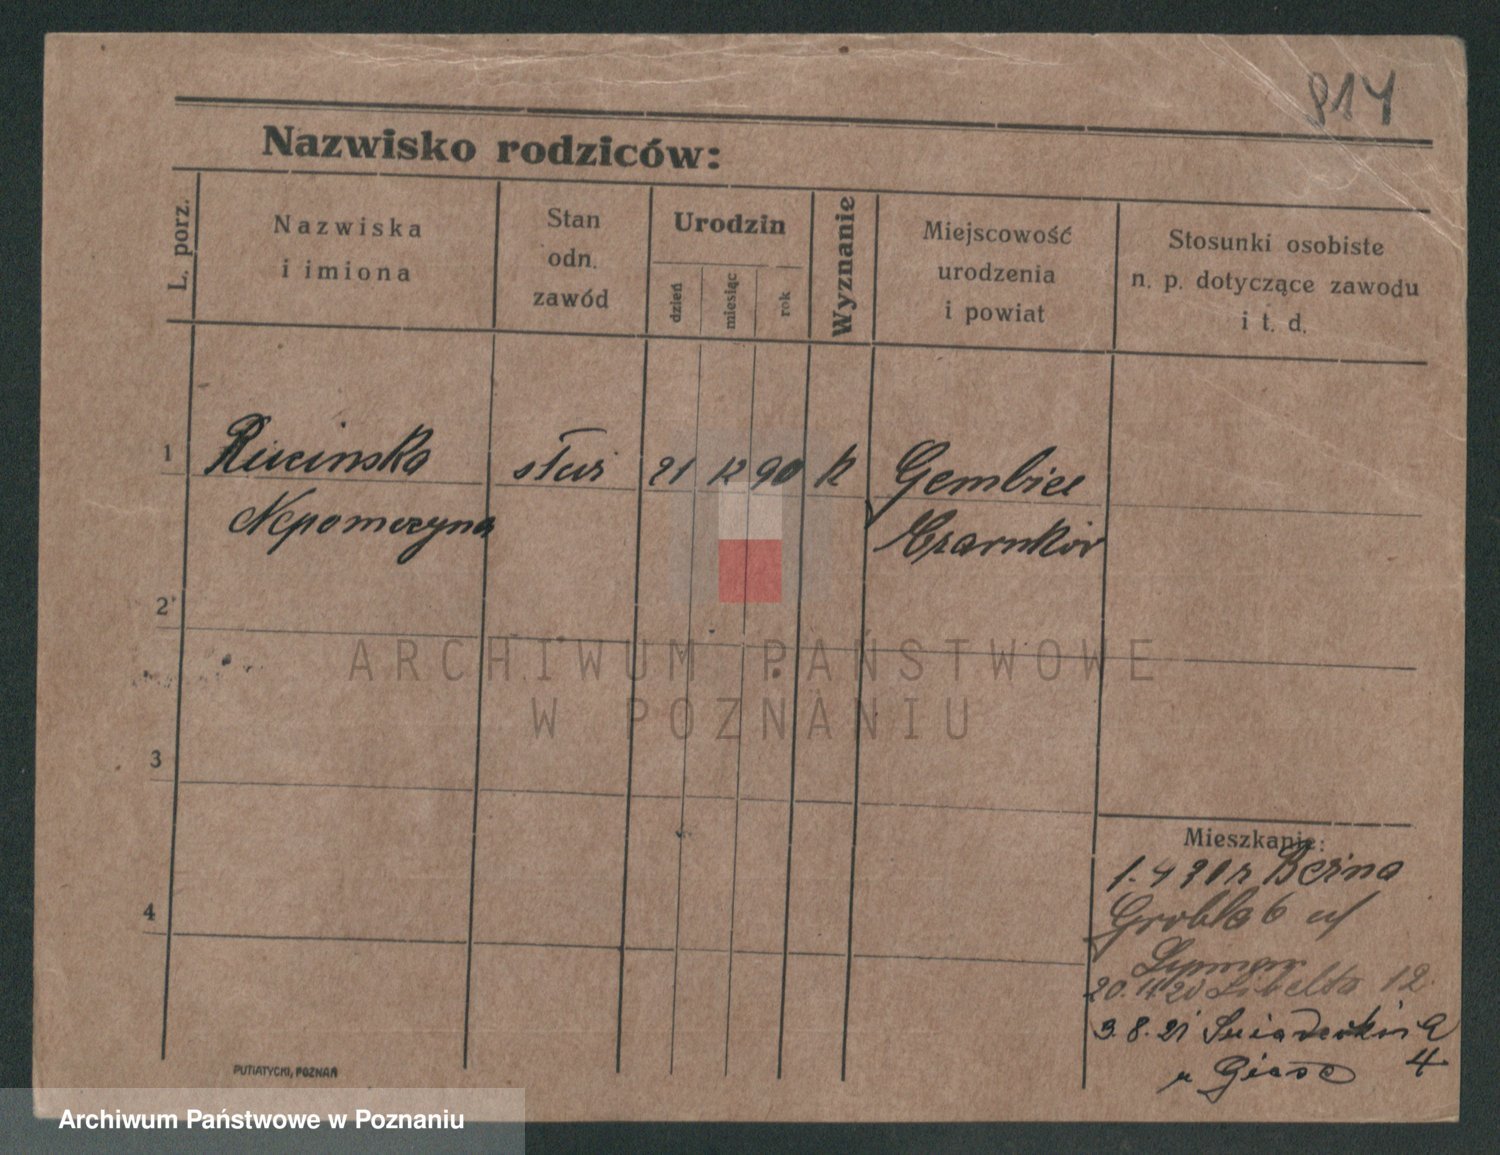 914
Nazwisko rodziców:
L. porz.
Nazwiska
i imiona
Stan
odn.
zawód
Urodzin
dzień
miesiąc
rok
Wyznanie
Miejscowość
urodzenia
i powiat
Stosunki osobiste
n. p. dotyczące zawodu
i t. d.
1 Rucinska służ 21 12 90 k Gembice
Nepomucyna Czarnków
2
ARCHIWUM PAŃSTWOWE
W POZNANIU
3
Mieszkanie:
1.4 20 r
Grobla 6 u/
4
20. 4 20 Libelta 12
3.8.21
u
4
PUTIATYCKI, POZNAŃ
Archiwum Państwowe w Poznaniu